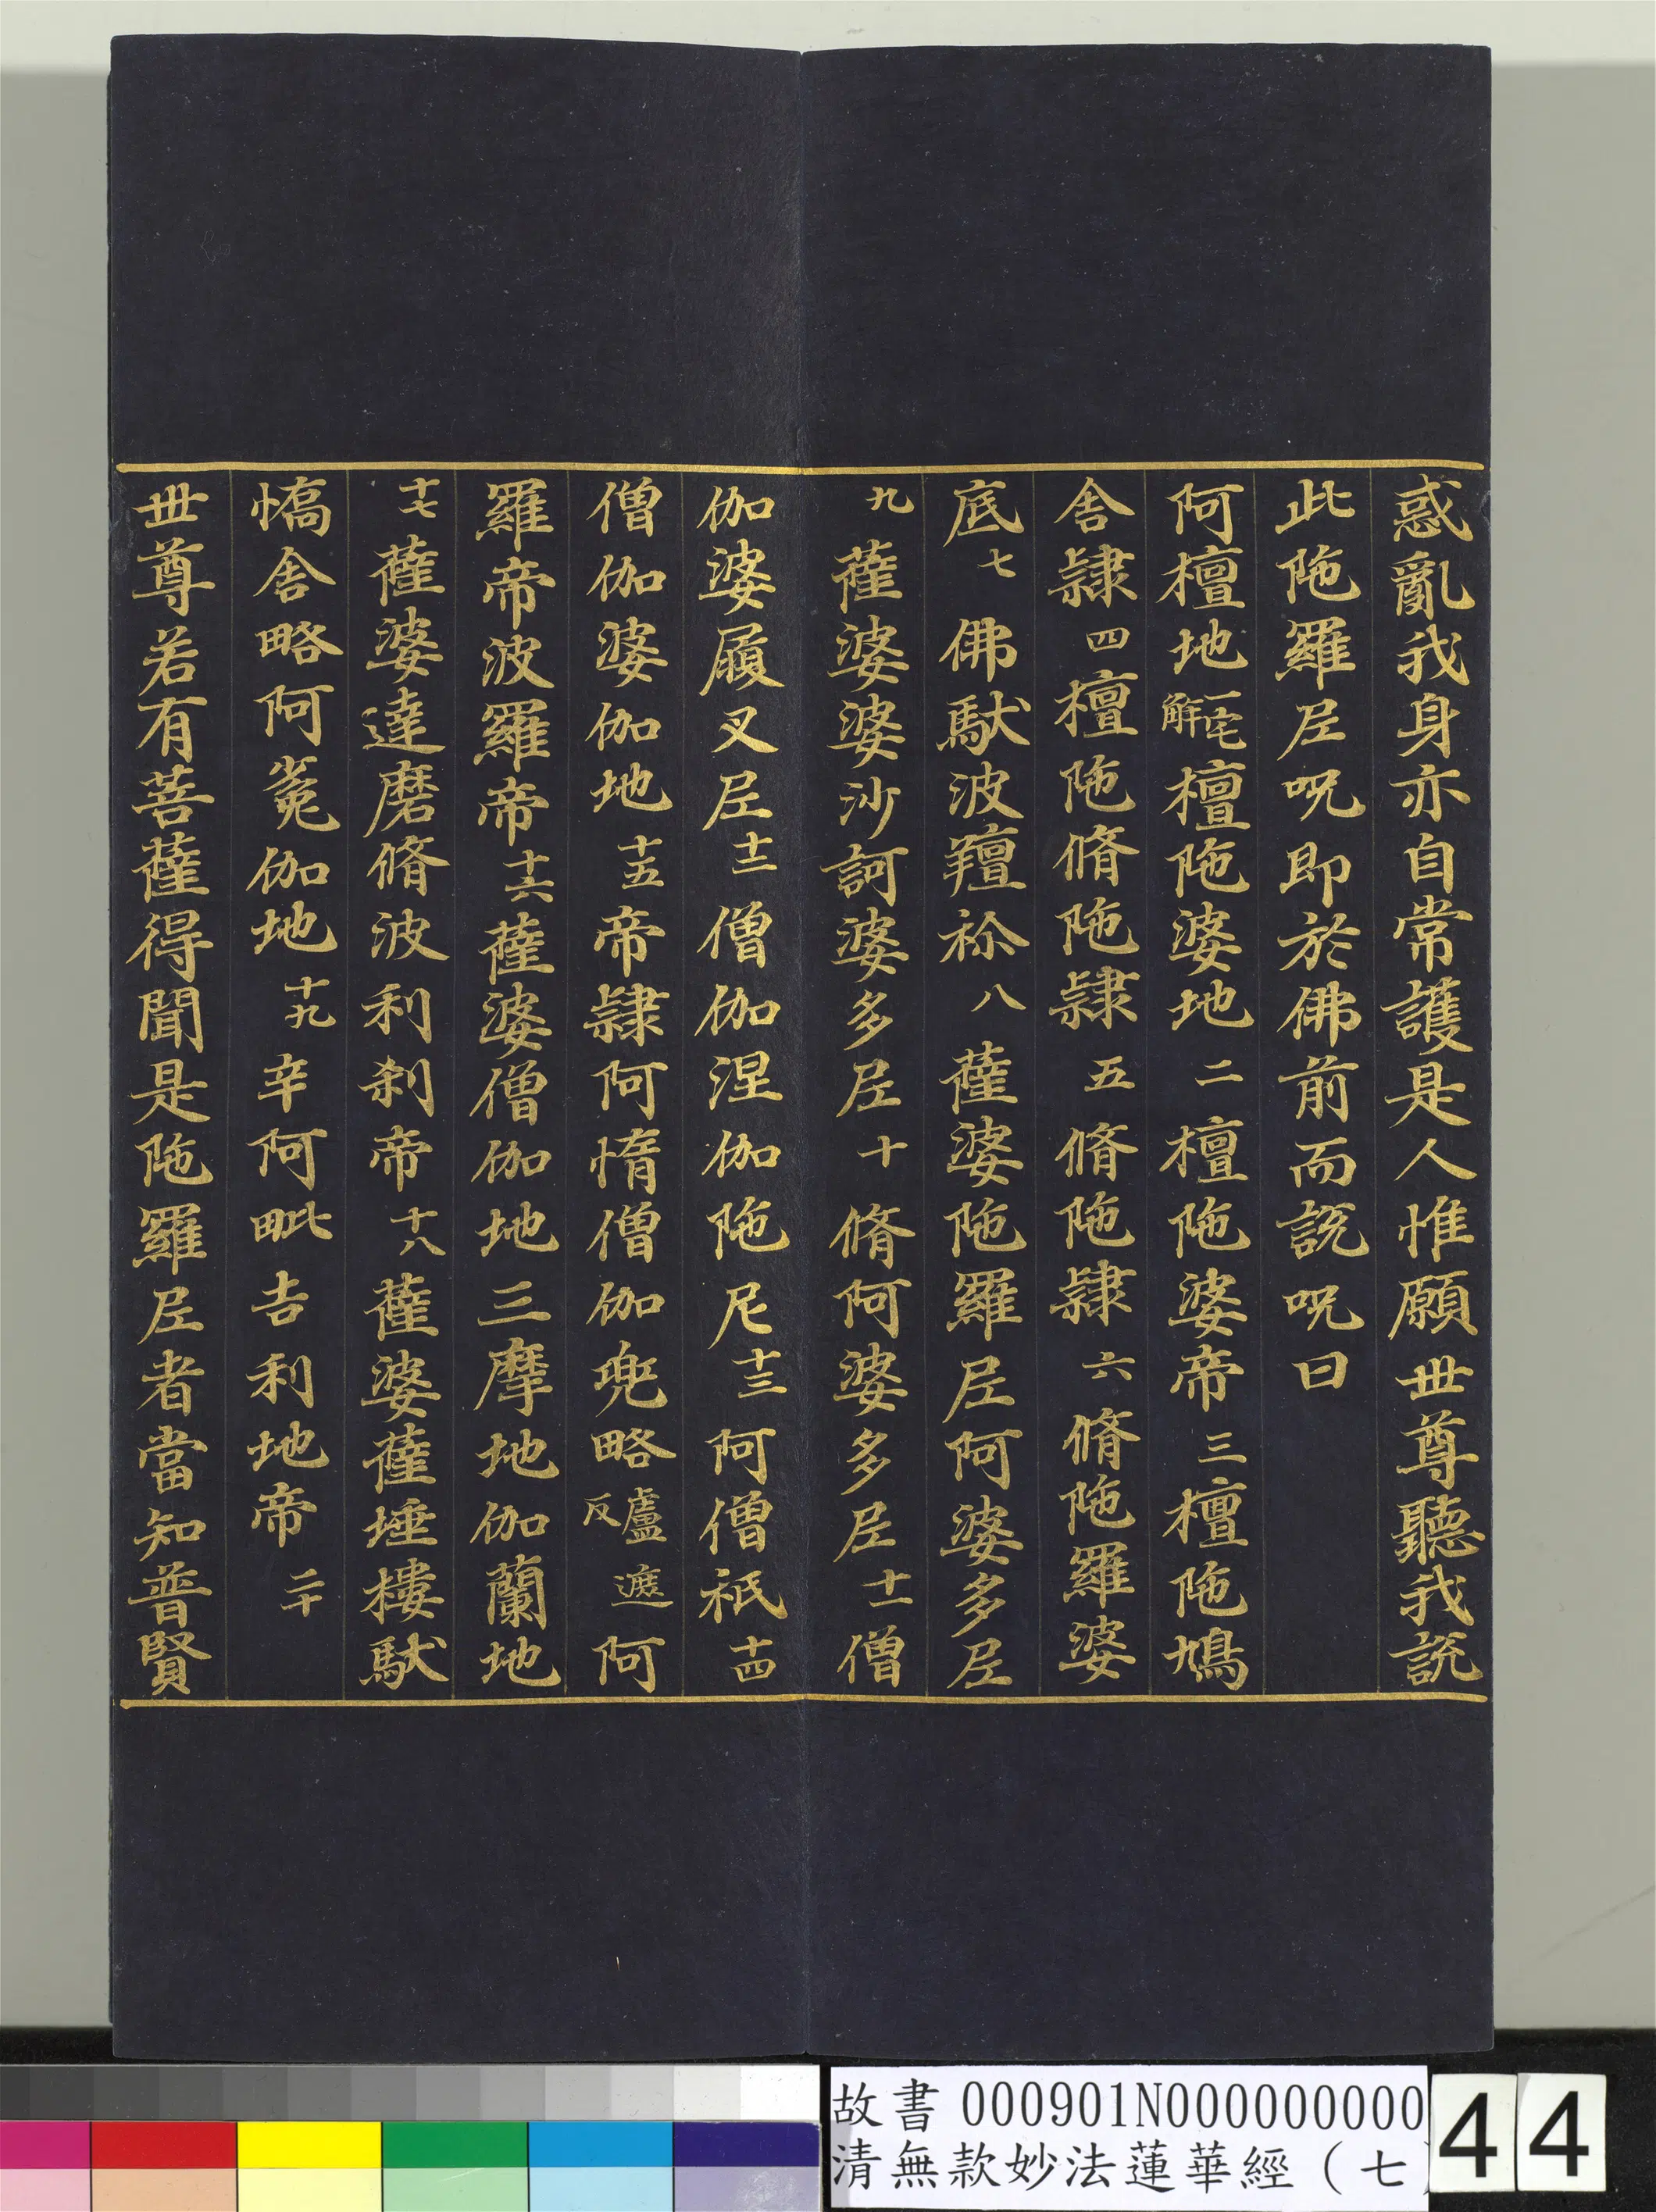 惑亂我身亦自常護是人惟願世尊聽我說
此陁羅𡰱呪即於佛前而說呪曰
阿檀地一宅解檀陁婆地二檀陁婆帝三檀陁鳩
舍隸四檀陁脩陁隸五脩陁隸六脩陁羅婆
底七佛馱波羶祢八薩婆陁羅𡰱阿婆多𡰱
九薩婆婆沙訶婆多𡰱十脩阿婆多𡰱十一僧
伽婆履叉𡰱十二僧伽涅伽陁尼十三阿僧祇十四
僧伽婆伽地十五帝隸阿惰僧伽兜略盧遮反阿
羅帝波羅帝十六薩婆僧伽地三摩地伽蘭地
十七薩婆達磨脩波利刹帝十八薩婆薩埵樓馱
憍舍略阿㝹伽地十九辛阿毗吉利地帝二十
世尊若有菩薩得聞是陁羅𡰱者當知普賢
故書 000901N000000000
清無款妙法蓮華經（七
44